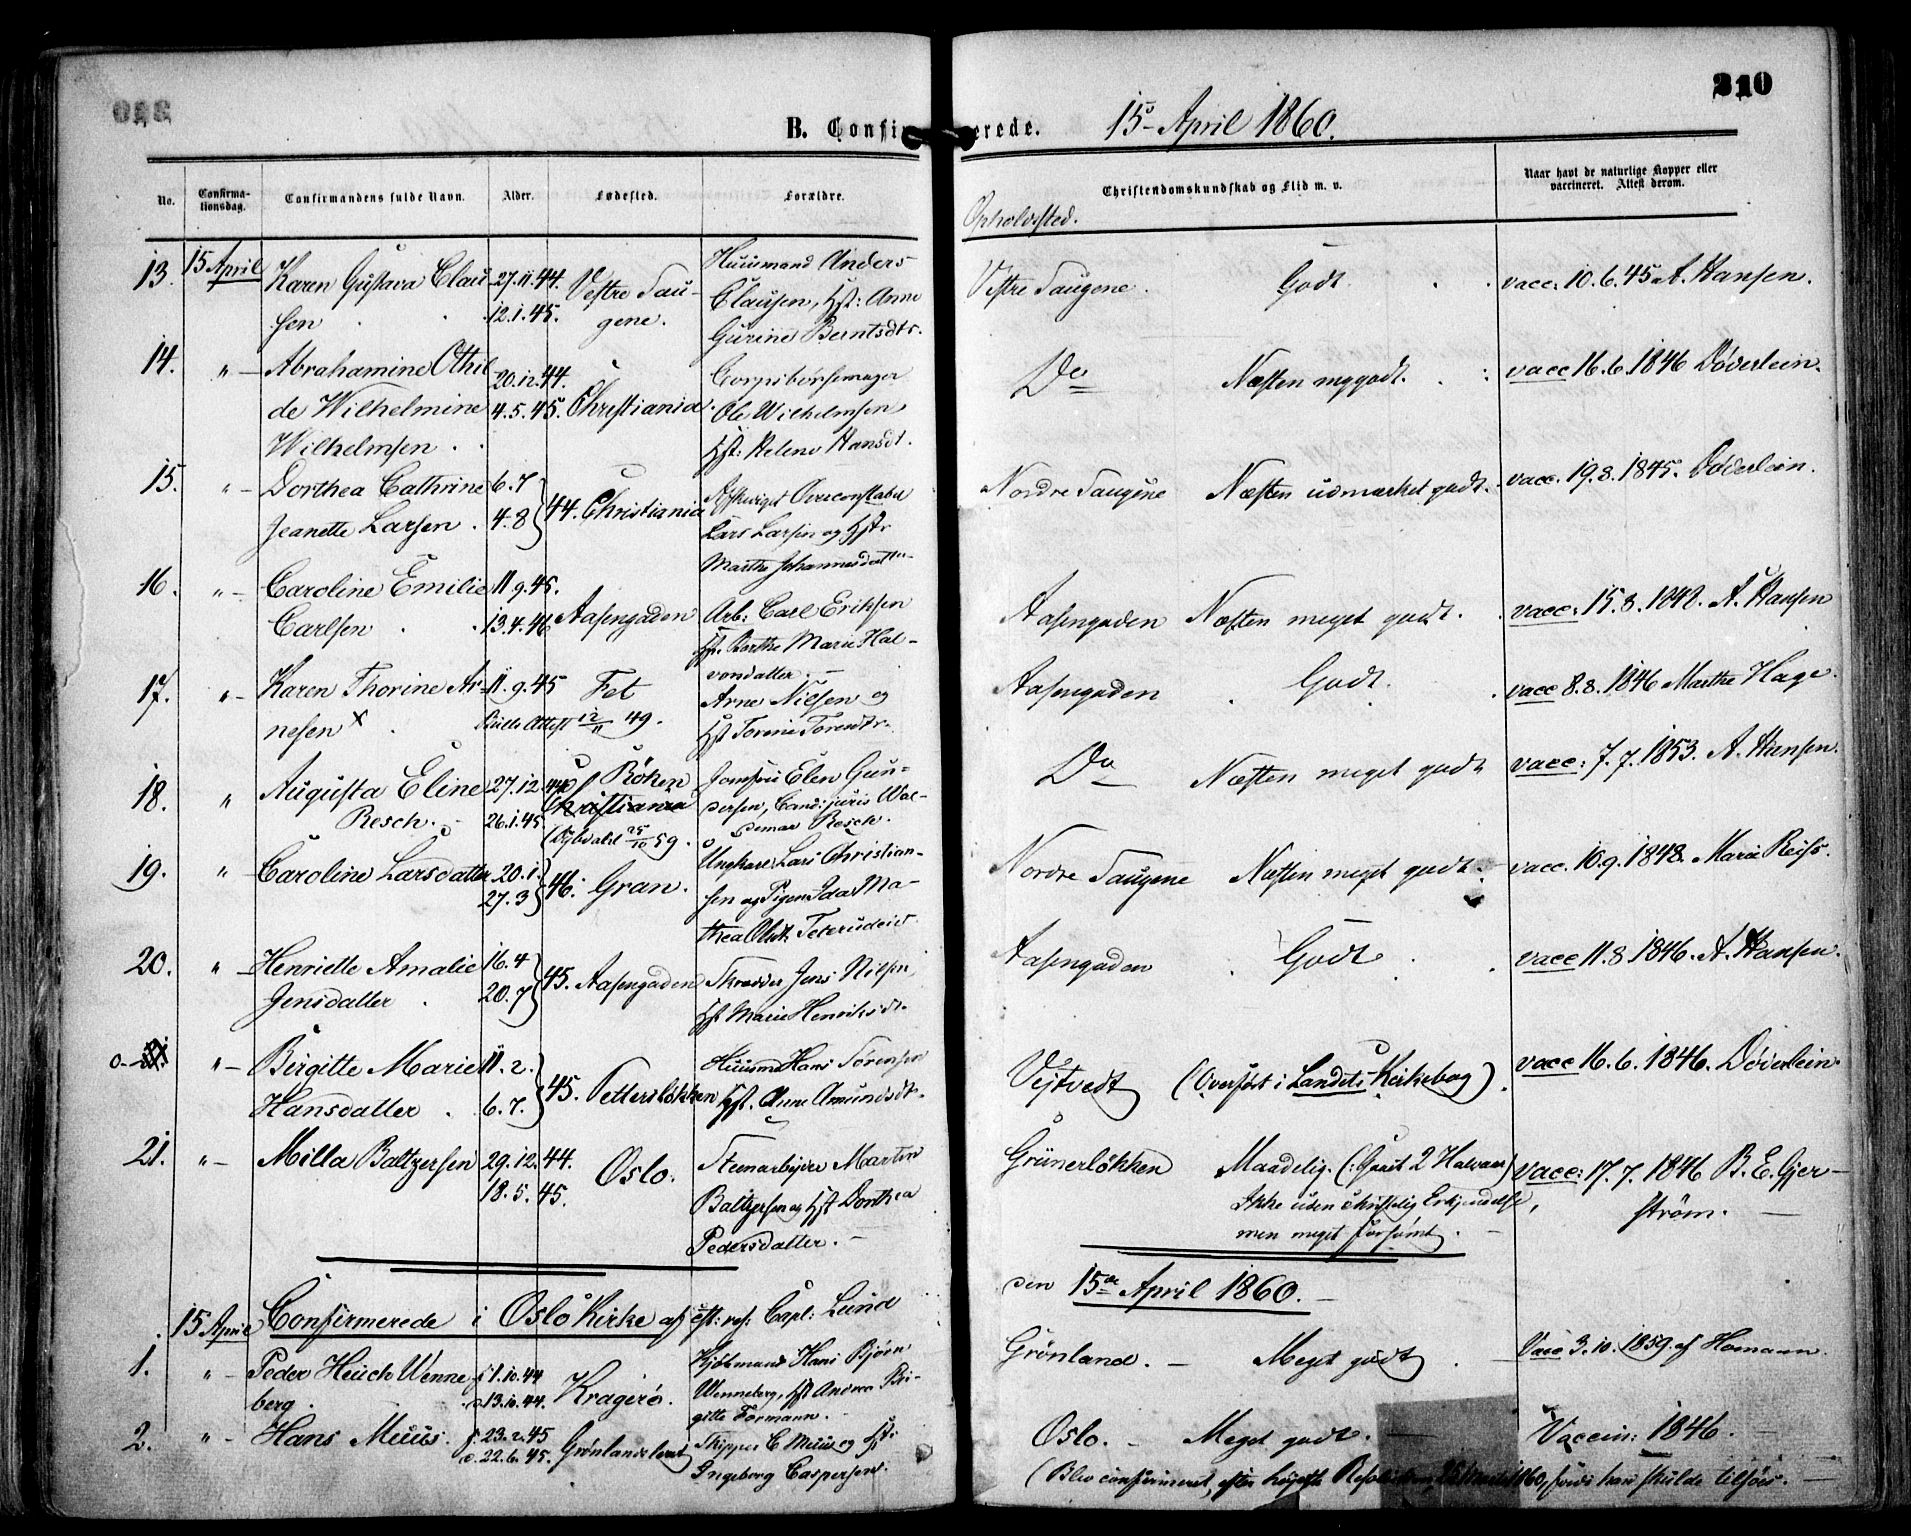 310
B. Confirmerede.
15 April 1860.
No. Confirmationsdag. Confirmandens fulde Navn. Alder. Fødested. Forældre. Christendomskundskab og Flid m. v. Naar havt de naturlige Kopper eller vaccineret. Attest derom.
Opholdssted.
13. 15 April Karen Gustava Clau 27.11.44. Vestre Sau- Huusmand Anders Vestre Saugene. Godt vacc: 10.6.45 A. Hansen.
sen 12.1.45. gene. Clausen, Hst: Anne
Gurine Berntsdtr.
14. " Abrahamine Othil 20.12.44. Christiania De Næsten mggodt. vacc 16.6.1846 Døderlein.
de Wilhelmine 4.5.45. Ole Wilhelmsen
Wilhelmsen Hst: Helene Hansdt.
15. " Dorthea Cathrine 6.7 44. Christiania Overconstabel Nordre Saugene Næsten udmærket godt. vacc. 19.8.1845. Døderlein.
Jeanette Larsen 4.8 Lars Larsen og Hst:
Marthe Johannesdatter
16. " Caroline Emilie 11.9.45. Aasengaden Arb: Carl Eriksen Aasengaden Næsten meget godt. vacc: 15.8. A. Hansen
Carlsen 13.4.46 Hst. Marie Hal-
vorsdatter
17. " Karen Thorine Ar- 11.9.45 Fet Arne Nilsen og Aasengaden Godt. vacc 8.8.1846 Marthe Hage.
nesen x Attest 12/11 49. Hst
18. " Augusta Eline 27.12.44 Røken Jomfru Elen Gun- Do Næsten meget godt vacc: 7.7.1853. A. Hansen.
Resch. 26.1.45 Christiania dersen, Cand: juris Wal-
25/10 59. demar Resch.
19. " Caroline Larsdatter 20.1 46. Gran. Ungkarl Lars Christian- Nordre Saugene Næsten meget godt. vacc. 10.9.1848. Marie Reiss.
27.3 sen og Pigen Ida Ma-
thea
20. " Henriette Amalie 16.4 45. Aasengaden Skrædder Jens Nilsen Aasengaden Godt vacc 11.8.1846. A. Hansen.
Jensdatter 20.7 Hst Marie Henriksdt.
" Birgitte Marie 11.2. 45. Petterløkken Huusmd Hans Sørensen Vejtvedt (Overført i Landets Kirkebog) vacc 16.6.1846. Døderlein
Hansdatter 6.7. Hst. Anne Amundsdt.
21. " Milla Baltzersen 29.12.44. Oslo. Steenarbejder Martin Grünerløkken Maadelig. (: Gaaet 2 Halvaar) vacc: 17.7.1846 B. E. Gjer-
18.5.45. Baltzersen og Hst Dorthea Ikke uden christelig Erkjendelse, strøm.
Pedersdatter. men meget forsømt.
15 April Confirmerede i Oslo Kirke af Capl: Lund den 15de April 1860.
1. " Peder Heuch Wenne f 1.10.44 Kragerø. Kjøbmand Hans Bjørn Grønland. Meget godt Vacc 3.10.1859 af Homann.
berg. d. 13.10.44. Wenneberg, Hst Andrea Bir-
gitte Formann.
2. " Hans Muus. f. 23.2.45 Skipper C Muus og Hst: Oslo. Meget godt. Vaccin: 1846.
d. 22.6.45. Ingeborg Caspersen. (Blev confirmeret, efter høyeste Resolution 1860, fordi han skulde tilsøes.